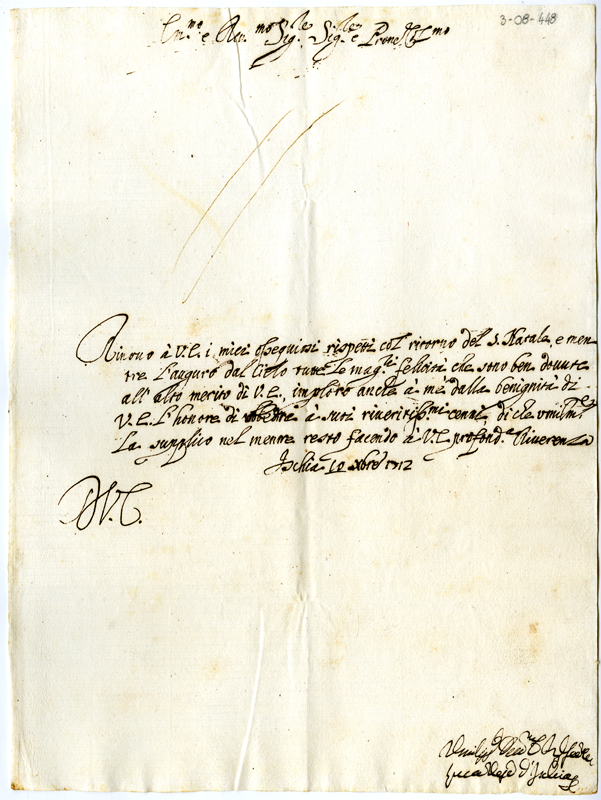 3-08-448
Em.mo e Rev.mo Sig.le Sig.le e Prone Col.mo
Rinovo à V.E. i miei ossequiosi rispetti col ritorno del S. Natale, e men
tre l'auguro dal Cielo tutte le mag.ri felicità che sono ben dovute
all'alto merito di V.E., imploro anche à mè dalla benignità di
V.E. l'honore di ubbedire à suoi riveritiss.mi cenni, di che umilm.te
La supplico nel mentre resto facendo à V.E. profond.a Riverenza
Ischia 19 xbre 1712
D V.E.